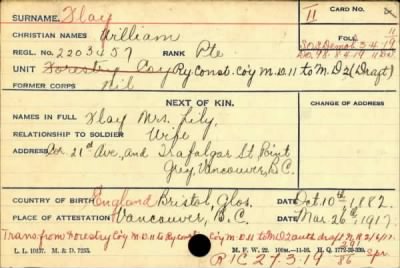 SURNAME. Flay
CARD No.
CHRISTIAN NAMES William
11
FOL.
REGL. No. 2203457 RANK Pte
SOS Demob 3.4.19
UNIT Forestry Coy Ry Const. Coy M.D.11 to M.D2 (Draft)
FORMER CORPS Nil
NEXT OF KIN.
CHANGE OF ADDRESS
NAMES IN FULL Flay Mrs. Lily,
RELATIONSHIP TO SOLDIER Wife
ADDRESS Cor. 21st Ave, and Trafalgar St. Point
Grey, Vancouver, B.C.
COUNTRY OF BIRTH England Bristol, Glos. Oct. 10th 1882.
PLACE OF ATTESTATION Vancouver, B.C. Mar 26th 1917.
Trans. from Forestry Coy M.D.11 to Ry Const. Coy M.D.11 to M.D2
L. L. 10137. M. & D. 7253. M. F. W. 22.
R1C 27.3.19